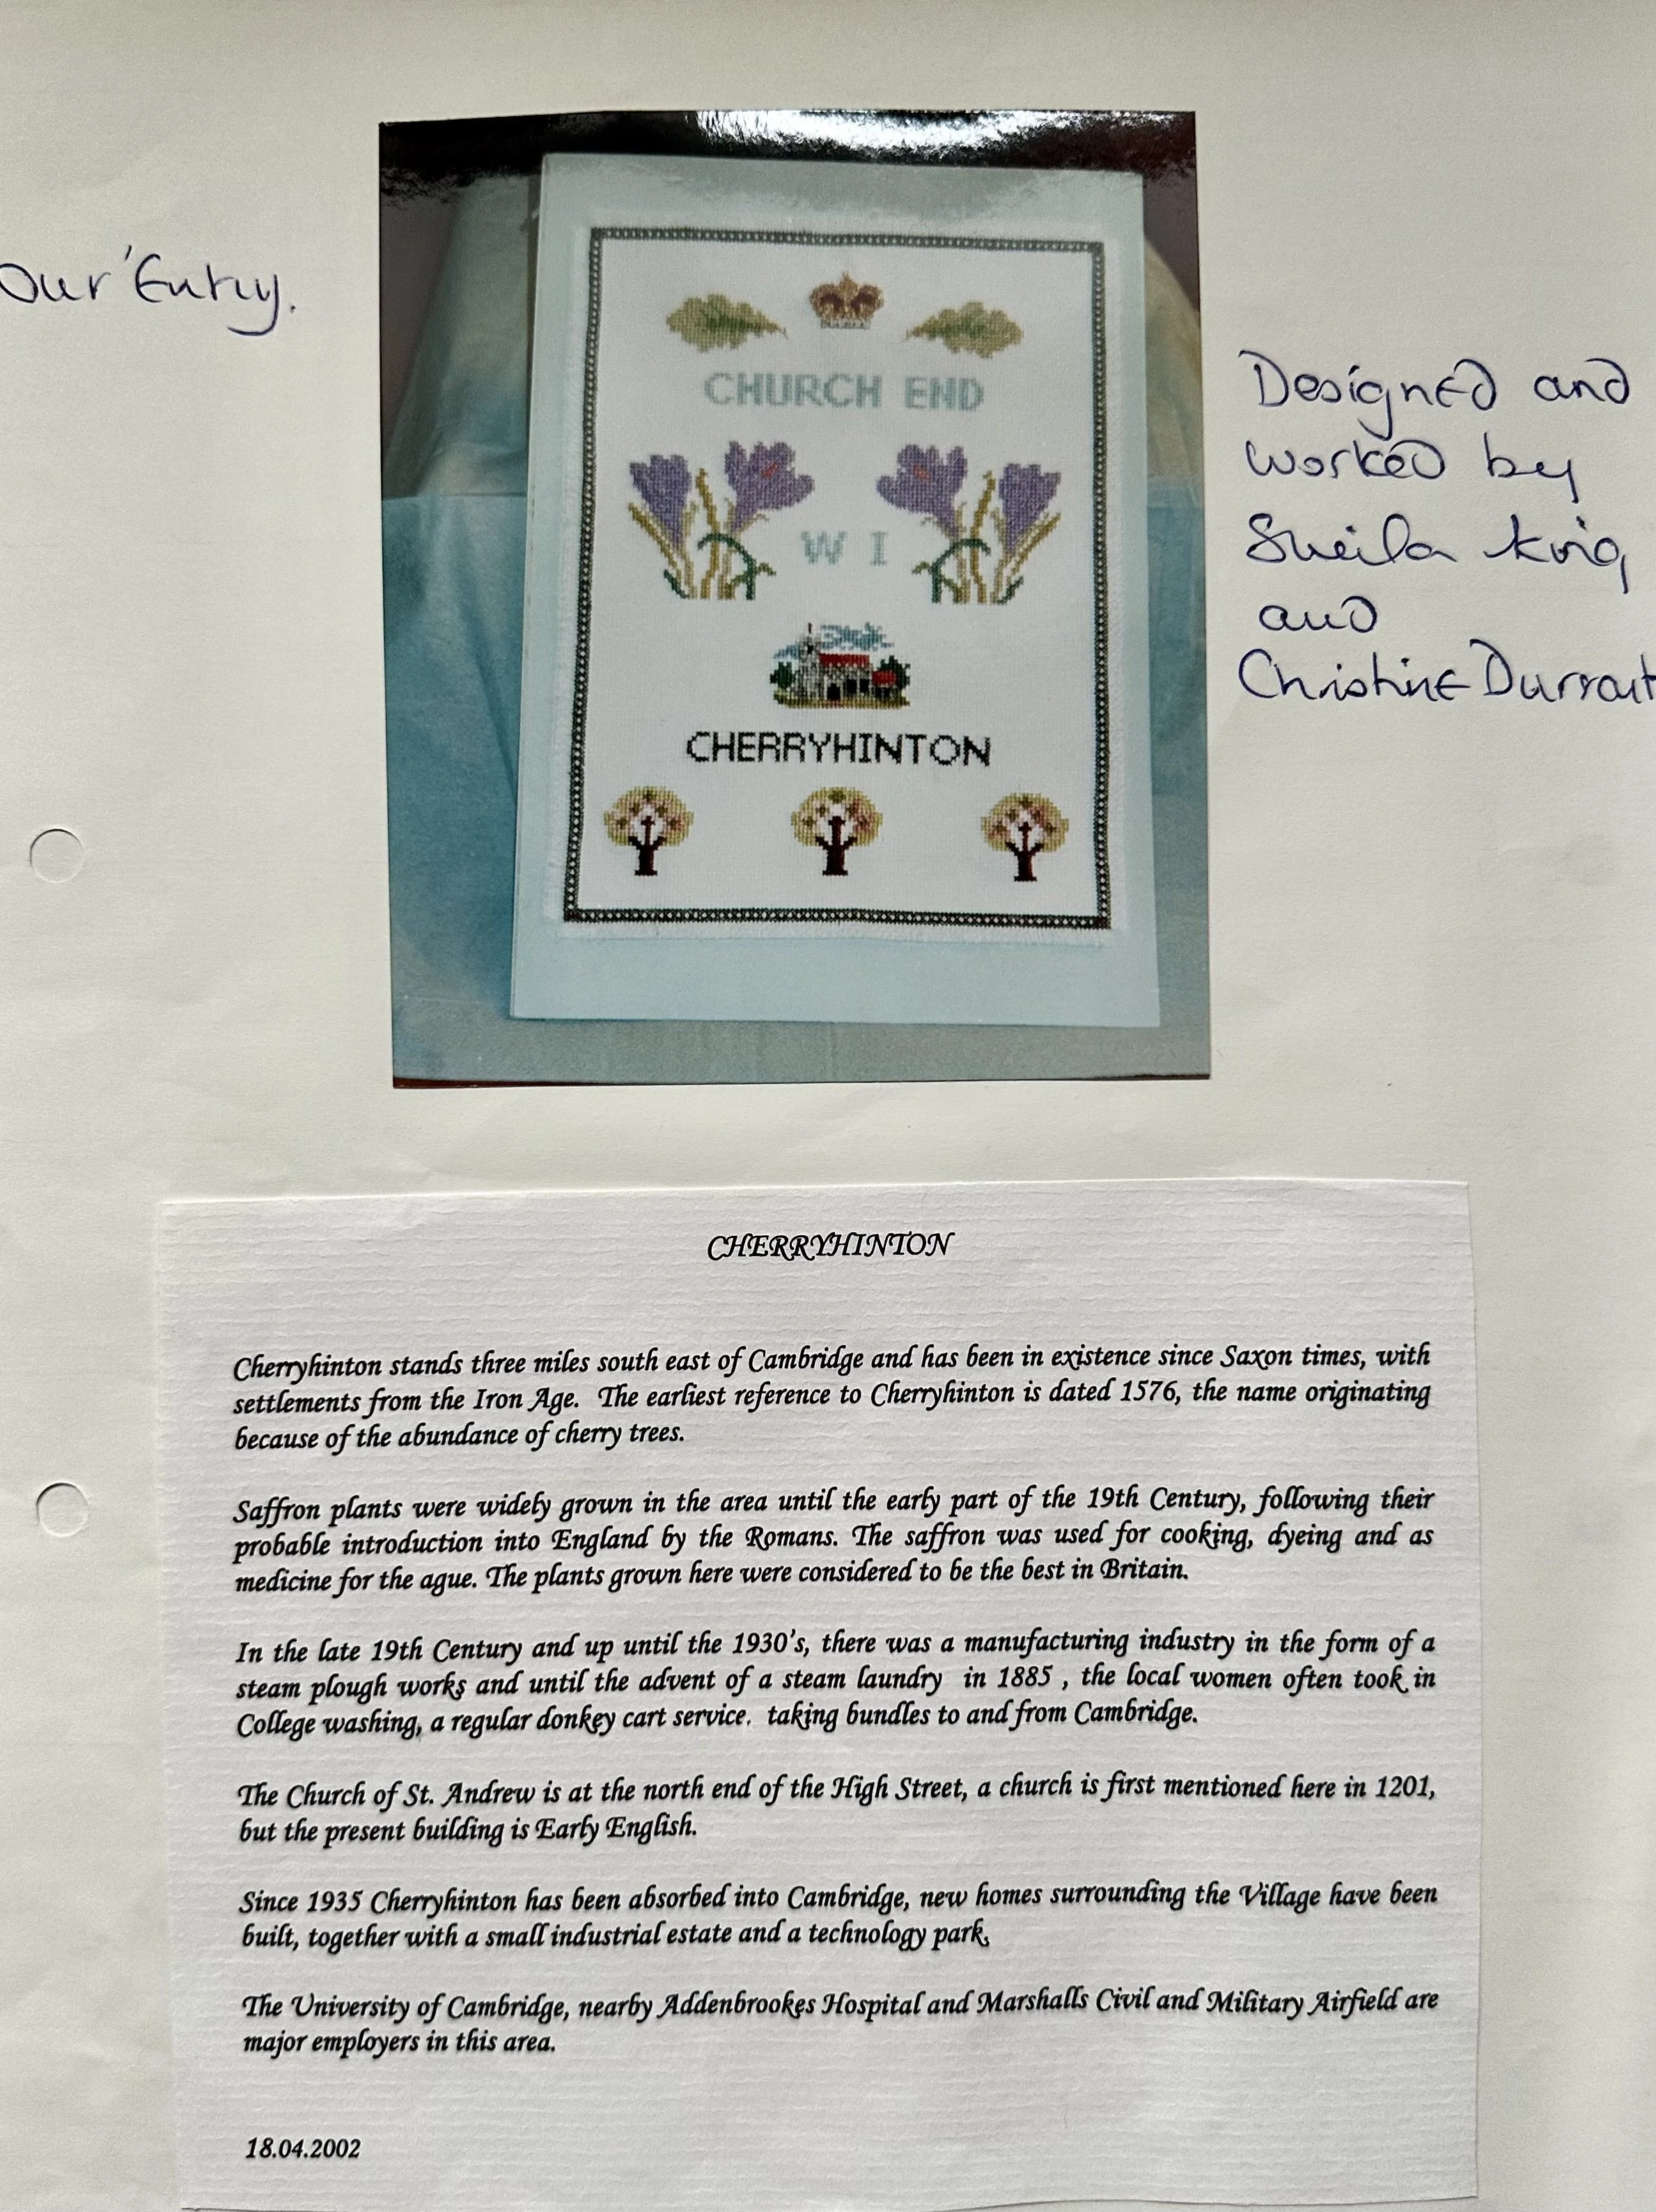 Our Entry.
CHURCH END
W I
CHERRYHINTON
Designed and
worked by
Sheila King
and
Christine Durrant
CHERRYHINTON
Cherryhinton stands three miles south east of Cambridge and has been in existence since Saxon times, with
settlements from the Iron Age. The earliest reference to Cherryhinton is dated 1576, the name originating
because of the abundance of cherry trees.
Saffron plants were widely grown in the area until the early part of the 19th Century, following their
probable introduction into England by the Romans. The saffron was used for cooking, dyeing and as
medicine for the ague. The plants grown here were considered to be the best in Britain.
In the late 19th Century and up until the 1930's, there was a manufacturing industry in the form of a
steam plough works and until the advent of a steam laundry in 1885 , the local women often took in
College washing, a regular donkey cart service. taking bundles to and from Cambridge.
The Church of St. Andrew is at the north end of the High Street, a church is first mentioned here in 1201,
but the present building is Early English.
Since 1935 Cherryhinton has been absorbed into Cambridge, new homes surrounding the Village have been
built, together with a small industrial estate and a technology park.
The University of Cambridge, nearby Addenbrookes Hospital and Marshalls Civil and Military Airfield are
major employers in this area.
18.04.2002